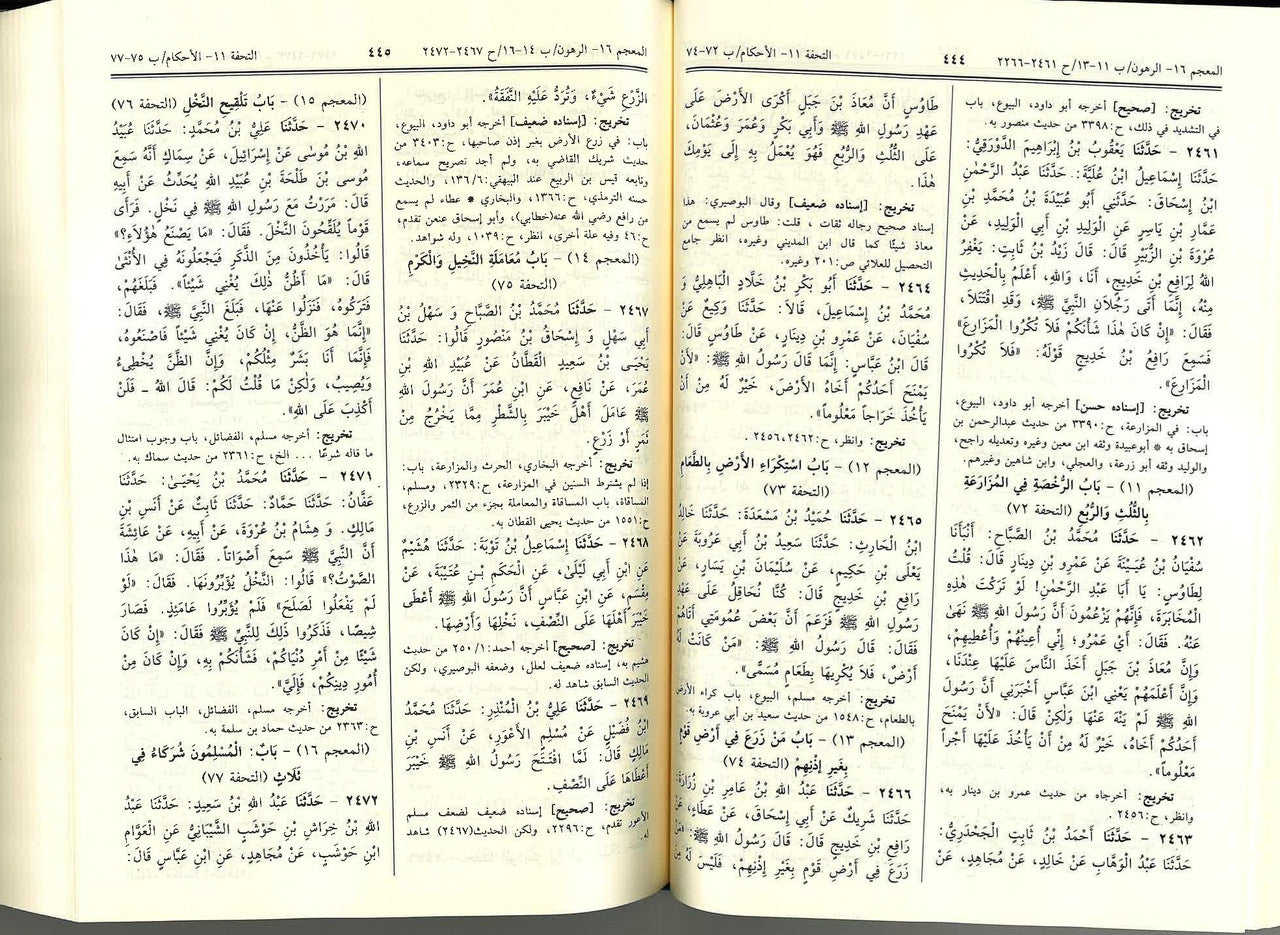 المعجم ١٦- الرهون/ ب ١١-١٣/ ح ٢٤٦١-٢٢٦٦
٤٤٤
التحفة ١١- الأحكام/ ب ٧٢-٧٤
تخريج: [صحيح] أخرجه أبو داود، البيوع، باب
في التشديد في ذلك، ح:٣٣٩٨ من حديث منصور به.
٢٤٦١ - حَدَّثَنَا يَعْقُوبُ بْنُ إِبْرَاهِيمَ الدَّوْرَقِيُّ:
حَدَّثَنَا إِسْمَاعِيلُ ابْنُ عُلَيَّةَ: حَدَّثَنَا عَبْدُ الرَّحْمٰنِ
ابْنُ إِسْحَاقَ: حَدَّثَنِي أَبُو عُبَيْدَةَ بْنُ مُحَمَّدِ بْنِ
عَمَّارِ بْنِ يَاسِرٍ عَنِ الْوَلِيدِ بْنِ أَبِي الْوَلِيدِ، عَنْ
عُرْوَةَ بْنِ الزُّبَيْرِ قَالَ: قَالَ زَيْدُ بْنُ ثَابِتٍ: يَغْفِرُ
اللهُ لِرَافِعِ بْنِ خَدِيجٍ، أَنَا، وَاللهِ، أَعْلَمُ بِالْحَدِيثِ
مِنْهُ، إِنَّمَا أَتَى رَجُلَانِ النَّبِيَّ ﷺ، وَقَدِ اقْتَتَلَا،
فَقَالَ: «إِنْ كَانَ هٰذَا شَأْنَكُمْ فَلَا تُكْرُوا الْمَزَارِعَ»
فَسَمِعَ رَافِعُ بْنُ خَدِيجٍ قَوْلَهُ: «فَلَا تُكْرُوا
الْمَزَارِعَ».
تخريج: [إسناده حسن] أخرجه أبو داود، البيوع،
باب: في المزارعة، ح:٣٣٩٠ من حديث عبدالرحمن بن
إسحاق به * أبوعبيدة وثقه ابن معين وغيره وتعديله راجح،
والوليد وثقه أبو زرعة، والعجلي، وابن شاهين وغيرهم.
(المعجم ١١) - بَابُ الرُّخْصَةِ فِي الْمُزَارَعَةِ
بِالثُّلُثِ وَالرُّبُعِ (التحفة ٧٢)
٢٤٦٢ - حَدَّثَنَا مُحَمَّدُ بْنُ الصَّبَّاحِ: أَنْبَأَنَا
سُفْيَانُ بْنُ عُيَيْنَةَ عَنْ عَمْرِو بْنِ دِينَارٍ قَالَ: قُلْتُ
لِطَاوُسٍ: يَا أَبَا عَبْدِ الرَّحْمٰنِ! لَوْ تَرَكْتَ هٰذِهِ
الْمُخَابَرَةَ، فَإِنَّهُمْ يَزْعُمُونَ أَنَّ رَسُولَ اللهِ ﷺ نَهَىٰ
عَنْهُ. فَقَالَ: أَيْ عَمْرُو! إِنِّي أُعِينُهُمْ وَأُعْطِيهِمْ،
وَإِنَّ مُعَاذَ بْنَ جَبَلٍ أَخَذَ النَّاسَ عَلَيْهَا عِنْدَنَا،
وَإِنَّ أَعْلَمَهُمْ يَعْنِي ابْنَ عَبَّاسٍ أَخْبَرَنِي أَنَّ رَسُولَ
اللهِ ﷺ لَمْ يَنْهَ عَنْهَا وَلَكِنْ قَالَ: «لَأَنْ يَمْنَحَ
أَحَدُكُمْ أَخَاهُ، خَيْرٌ لَهُ مِنْ أَنْ يَأْخُذَ عَلَيْهَا أَجْراً
مَعْلُوماً».
تخريج: أخرجاه من حديث عمرو بن دينار به،
وانظر، ح:٢٤٥٦.
٢٤٦٣ - حَدَّثَنَا أَحْمَدُ بْنُ ثَابِتٍ الْجَحْدَرِيُّ:
حَدَّثَنَا عَبْدُ الْوَهَّابِ عَنْ خَالِدٍ، عَنْ مُجَاهِدٍ، عَنْ
طَاوُسٍ أَنَّ مُعَاذَ بْنَ جَبَلٍ أَكْرَى الْأَرْضَ عَلَىٰ
عَهْدِ رَسُولِ اللهِ ﷺ وَأَبِي بَكْرٍ وَعُمَرَ وَعُثْمَانَ،
عَلَى الثُّلُثِ وَالرُّبُعِ فَهُوَ يُعْمَلُ بِهِ إِلَىٰ يَوْمِكَ
هٰذَا.
تخريج: [إسناده ضعيف] وقال البوصيري: هذا
إسناد صحيح رجاله ثقات ، قلت: طاوس لم يسمع من
معاذ شيئًا كما قال ابن المديني وغيره، انظر جامع
التحصيل للعلائي ص:٢٠١ وغيره.
٢٤٦٤ - حَدَّثَنَا أَبُو بَكْرِ بْنُ خَلَّادٍ الْبَاهِلِيُّ وَ
مُحَمَّدُ بْنُ إِسْمَاعِيلَ، قَالَا: حَدَّثَنَا وَكِيعٌ عَنْ
سُفْيَانَ، عَنْ عَمْرِو بْنِ دِينَارٍ، عَنْ طَاوُسٍ قَالَ:
قَالَ ابْنُ عَبَّاسٍ: إِنَّمَا قَالَ رَسُولُ اللهِ ﷺ: «لَأَنْ
يَمْنَحَ أَحَدُكُمْ أَخَاهُ الْأَرْضَ، خَيْرٌ لَهُ مِنْ أَنْ
يَأْخُذَ خَرَاجاً مَعْلُوماً».
تخريج: وانظر، ح:٢٤٥٦،٢٤٦٢ .
(المعجم ١٢) - بَابُ اسْتِكْرَاءِ الْأَرْضِ بِالطَّعَامِ
(التحفة ٧٣)
٢٤٦٥ - حَدَّثَنَا حُمَيْدُ بْنُ مَسْعَدَةَ: حَدَّثَنَا خَالِدُ
ابْنُ الْحَارِثِ: حَدَّثَنَا سَعِيدُ بْنُ أَبِي عَرُوبَةَ عَنْ
يَعْلَى بْنِ حَكِيمٍ، عَنْ سُلَيْمَانَ بْنِ يَسَارٍ، عَنْ
رَافِعِ بْنِ خَدِيجٍ قَالَ: كُنَّا نُحَاقِلُ عَلَىٰ عَهْدِ
رَسُولِ اللهِ ﷺ فَزَعَمَ أَنَّ بَعْضَ عُمُومَتِي أَتَاهُمْ
فَقَالَ: قَالَ رَسُولُ اللهِ ﷺ: «مَنْ كَانَتْ لَهُ
أَرْضٌ، فَلَا يُكْرِيهَا بِطَعَامٍ مُسَمًّى».
تخريج: أخرجه مسلم، البيوع، باب كراء الأرض
بالطعام، ح:١٥٤٨ من حديث سعيد بن أبي عروبة به.
(المعجم ١٣) - بَابُ مَنْ زَرَعَ فِي أَرْضِ قَوْمٍ
بِغَيْرِ إِذْنِهِمْ (التحفة ٧٤)
٢٤٦٦ - حَدَّثَنَا عَبْدُ اللهِ بْنُ عَامِرِ بْنِ زُرَارَةَ:
حَدَّثَنَا شَرِيكٌ عَنْ أَبِي إِسْحَاقَ، عَنْ عَطَاءٍ، عَنْ
رَافِعِ بْنِ خَدِيجٍ قَالَ: قَالَ رَسُولُ اللهِ ﷺ: «مَنْ
زَرَعَ فِي أَرْضِ قَوْمٍ بِغَيْرِ إِذْنِهِمْ، فَلَيْسَ لَهُ مِنَ
المعجم ١٦- الرهون/ ب ١٤-١٦/ ح ٢٤٦٧-٢٤٧٢
٤٤٥
التحفة ١١- الأحكام/ ب ٧٥-٧٧
الزَّرْعِ شَيْءٌ، وَتُرَدُّ عَلَيْهِ النَّفَقَةُ».
تخريج: [إسناده ضعيف] أخرجه أبو داود، البيوع،
باب: في زرع الأرض بغير إذن صاحبها، ح:٣٤٠٣ من
حديث شريك القاضي به، ولم أجد تصريح سماعه،
وتابعه قيس بن الربيع عند البيهقي:١٣٦/٦، والحديث
حسنه الترمذي، ح:١٣٦٦، والبخاري * عطاء لم يسمع
من رافع رضي الله عنه(خطابي)، وأبو إسحاق عنعن تقدم،
ح:٤٦ وفيه علة أخرى، انظر، ح:١٠٣٩، وله شواهد.
(المعجم ١٤) - بَابُ مُعَامَلَةِ النَّخِيلِ وَالْكَرْمِ
(التحفة ٧٥)
٢٤٦٧ - حَدَّثَنَا مُحَمَّدُ بْنُ الصَّبَّاحِ وَ سَهْلُ بْنُ
أَبِي سَهْلٍ وَ إِسْحَاقُ بْنُ مَنْصُورٍ قَالُوا: حَدَّثَنَا
يَحْيَى بْنُ سَعِيدٍ الْقَطَّانُ عَنْ عُبَيْدِ اللهِ بْنِ
عُمَرَ، عَنْ نَافِعٍ، عَنِ ابْنِ عُمَرَ أَنَّ رَسُولَ اللهِ
ﷺ عَامَلَ أَهْلَ خَيْبَرَ بِالشَّطْرِ مِمَّا يَخْرُجُ مِنْ
ثَمَرٍ أَوْ زَرْعٍ.
تخريج: أخرجه البخاري، الحرث والمزارعة، باب:
إذا لم يشترط السنين في المزارعة، ح:٢٣٢٩، ومسلم،
المساقاة، باب المساقاة والمعاملة بجزء من الثمر والزرع،
ح:١٥٥١ من حديث يحيى القطان به.
٢٤٦٨ - حَدَّثَنَا إِسْمَاعِيلُ بْنُ تَوْبَةَ: حَدَّثَنَا هُشَيْمٌ
عَنِ ابْنِ أَبِي لَيْلَىٰ، عَنِ الْحَكَمِ بْنِ عُتَيْبَةَ، عَنْ
مِقْسَمٍ، عَنِ ابْنِ عَبَّاسٍ أَنَّ رَسُولَ اللهِ ﷺ أَعْطَى
خَيْبَرَ أَهْلَهَا عَلَى النِّصْفِ، نَخْلِهَا وَأَرْضِهَا.
تخريج: [صحيح] أخرجه أحمد:٢٥٠/١ من حديث
هشيم به، إسناده ضعيف لعلل، وضعفه البوصيري، ولكن
الحديث السابق شاهد له.
٢٤٦٩ - حَدَّثَنَا عَلِيُّ بْنُ الْمُنْذِرِ: حَدَّثَنَا مُحَمَّدُ
ابْنُ فُضَيْلٍ عَنْ مُسْلِمٍ الْأَعْوَرِ، عَنْ أَنَسِ بْنِ
مَالِكٍ قَالَ: لَمَّا افْتَتَحَ رَسُولُ اللهِ ﷺ خَيْبَرَ
أَعْطَاهَا عَلَى النِّصْفِ.
تخريج: [صحيح] إسناده ضعيف لضعف مسلم
الأعور تقدم، ح:٢٢٩٦، ولكن الحديث(٢٤٦٧) شاهد
له.
(المعجم ١٥) - بَابُ تَلْقِيحِ النَّخْلِ (التحفة ٧٦)
٢٤٧٠ - حَدَّثَنَا عَلِيُّ بْنُ مُحَمَّدٍ: حَدَّثَنَا عُبَيْدُ
اللهِ بْنُ مُوسَى عَنْ إِسْرَائِيلَ، عَنْ سِمَاكٍ أَنَّهُ سَمِعَ
مُوسَى بْنَ طَلْحَةَ بْنِ عُبَيْدِ اللهِ يُحَدِّثُ عَنْ أَبِيهِ
قَالَ: مَرَرْتُ مَعَ رَسُولِ اللهِ ﷺ فِي نَخْلٍ. فَرَأَى
قَوْماً يُلَقِّحُونَ النَّخْلَ. فَقَالَ: «مَا يَصْنَعُ هٰؤُلَاءِ؟»
قَالُوا: يَأْخُذُونَ مِنَ الذَّكَرِ فَيَجْعَلُونَهُ فِي الْأُنْثَىٰ
قَالَ: «مَا أَظُنُّ ذٰلِكَ يُغْنِي شَيْئاً». فَبَلَغَهُمْ،
فَتَرَكُوهُ، فَنَزَلُوا عَنْهَا، فَبَلَغَ النَّبِيَّ ﷺ، فَقَالَ:
«إِنَّمَا هُوَ الظَّنُّ، إِنْ كَانَ يُغْنِي شَيْئاً فَاصْنَعُوهُ،
فَإِنَّمَا أَنَا بَشَرٌ مِثْلُكُمْ، وَإِنَّ الظَّنَّ يُخْطِىءُ
وَيُصِيبُ، وَلَكِنْ مَا قُلْتُ لَكُمْ: قَالَ اللهُ - فَلَنْ
أَكْذِبَ عَلَى اللهِ».
تخريج: أخرجه مسلم، الفضائل، باب وجوب امتثال
ما قاله شرعًا . . . الخ، ح:٢٣٦١ من حديث سماك به.
٢٤٧١ - حَدَّثَنَا مُحَمَّدُ بْنُ يَحْيَىٰ: حَدَّثَنَا
عَفَّانُ: حَدَّثَنَا حَمَّادٌ: حَدَّثَنَا ثَابِتٌ عَنْ أَنَسِ بْنِ
مَالِكٍ. وَ هِشَامُ بْنُ عُرْوَةَ، عَنْ أَبِيهِ، عَنْ عَائِشَةَ
أَنَّ النَّبِيَّ ﷺ سَمِعَ أَصْوَاتاً. فَقَالَ: «مَا هٰذَا
الصَّوْتُ؟» قَالُوا: النَّخْلُ يُؤَبِّرُونَهَا. فَقَالَ: «لَوْ
لَمْ يَفْعَلُوا لَصَلَحَ» فَلَمْ يُؤَبِّرُوا عَامَئِذٍ. فَصَارَ
شِيصًا، فَذَكَرُوا ذَلِكَ لِلنَّبِيِّ ﷺ فَقَالَ: «إِنْ كَانَ
شَيْئًا مِنْ أَمْرِ دُنْيَاكُمْ، فَشَأْنَكُمْ بِهِ، وَإِنْ كَانَ مِنْ
أُمُورِ دِينِكُمْ، فَإِلَيَّ».
تخريج: أخرجه مسلم، الفضائل، الباب السابق،
ح:٢٣٦٣ من حديث حماد بن سلمة به.
(المعجم ١٦) - بَابٌ: الْمُسْلِمُونَ شُرَكَاءُ فِي
ثَلَاثٍ (التحفة ٧٧)
٢٤٧٢ - حَدَّثَنَا عَبْدُ اللهِ بْنُ سَعِيدٍ: حَدَّثَنَا عَبْدُ
اللهِ بْنُ خِرَاشِ بْنِ حَوْشَبٍ الشَّيْبَانِيُّ عَنِ الْعَوَّامِ
ابْنِ حَوْشَبٍ، عَنْ مُجَاهِدٍ، عَنِ ابْنِ عَبَّاسٍ قَالَ: